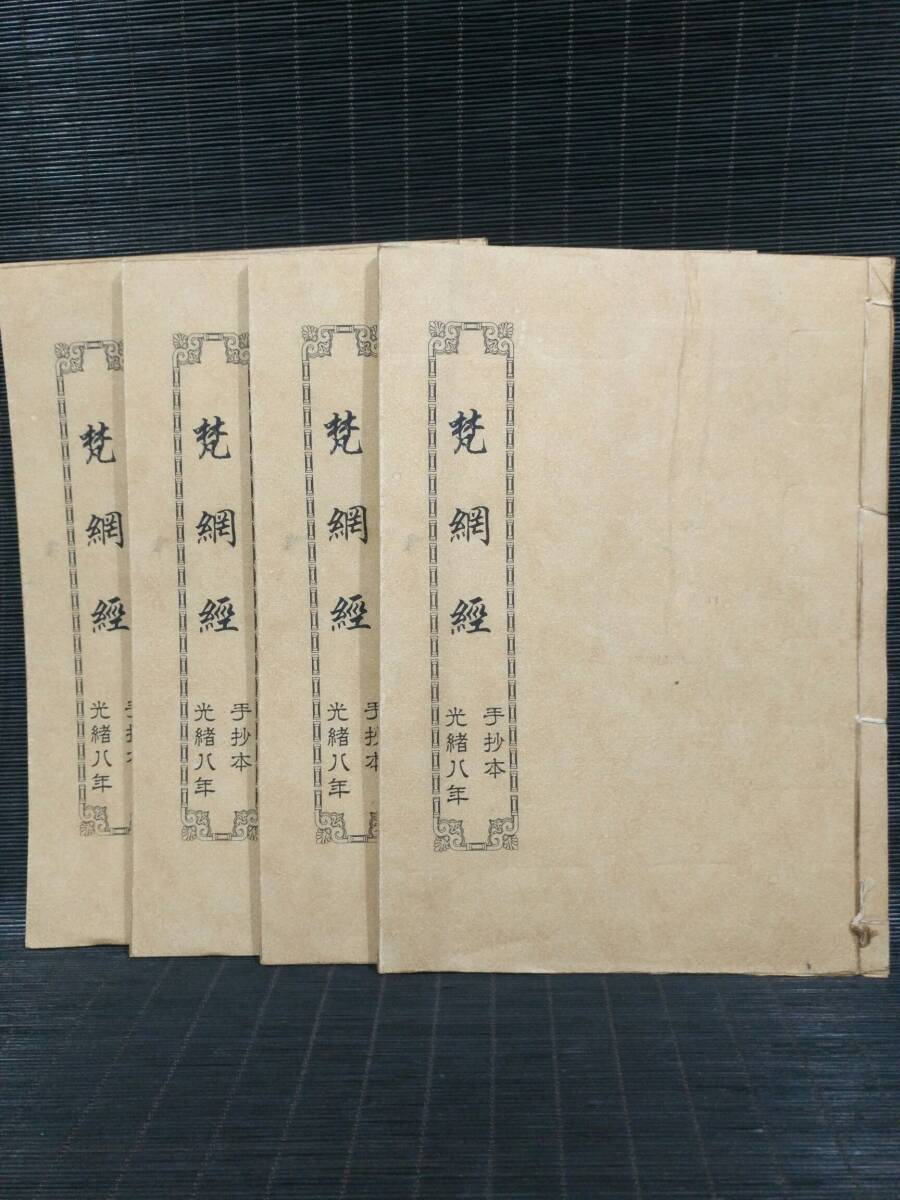 梵網經
手抄本
光緒八年
梵網經
手抄本
光緒八年
梵網經
手抄本
光緒八年
梵網經
手抄本
光緒八年